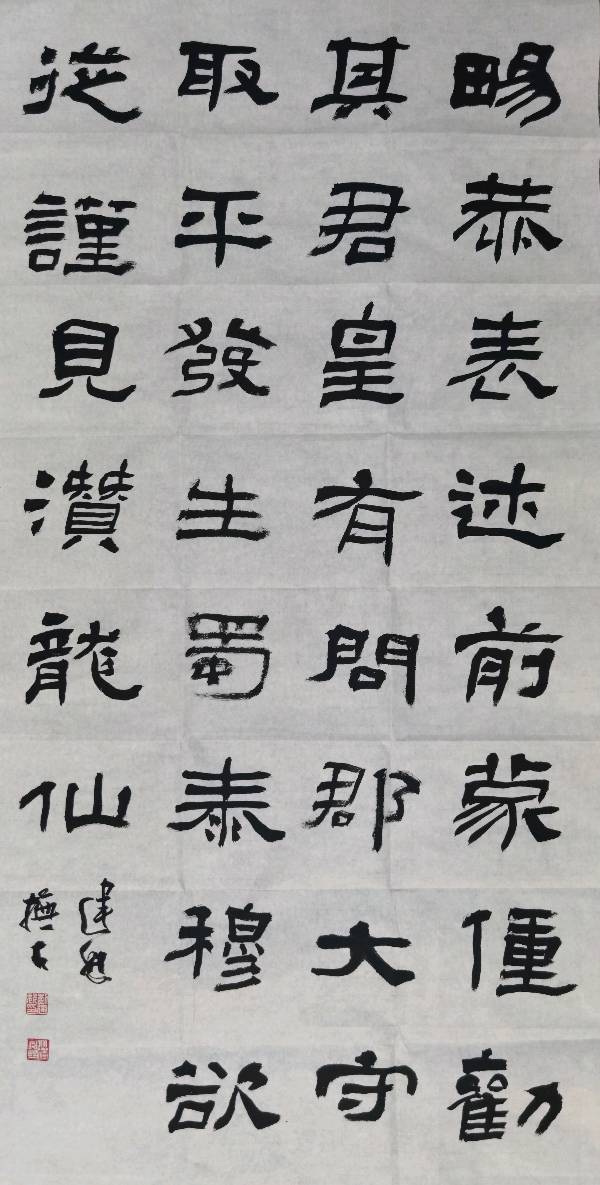 畼恭表述前蒙僅勸
其君皇有問郡大守
取平發生蜀泰穆欲
從謹見瓚龍仙
建
撫古